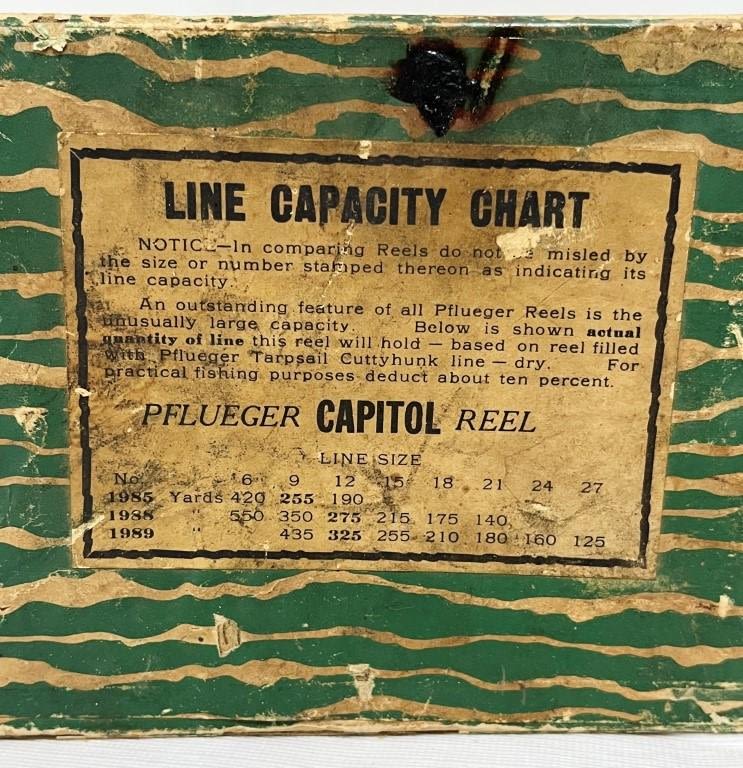 LINE CAPACITY CHART
NOTICE—In comparing Reels do not be misled by
the size or number stamped thereon as indicating its
line capacity.
An outstanding feature of all Pflueger Reels is the
unusually large capacity. Below is shown actual
quantity of line this reel will hold — based on reel filled
with Pflueger Tarpsail Cuttyhunk line — dry. For
practical fishing purposes deduct about ten percent.
PFLUEGER CAPITOL REEL
LINE SIZE
No. 6 9 12 15 18 21 24 27
1985 Yards 420 255 190
1988 " 550 350 275 215 175 140
1989 " 435 325 255 210 180 160 125